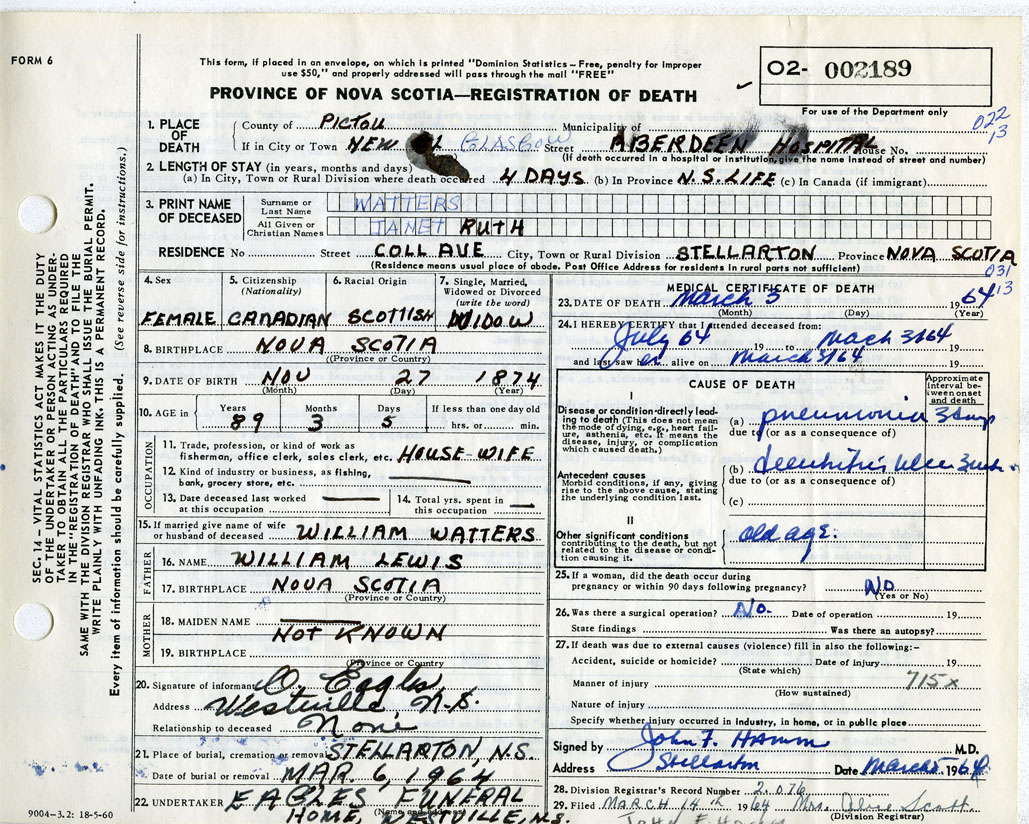 FORM 6
This form, if placed in an envelope, on which is printed "Dominion Statistics – Free, penalty for improper
use $50," and properly addressed will pass through the mail "FREE"
PROVINCE OF NOVA SCOTIA—REGISTRATION OF DEATH
02- 002189
For use of the Department only
022
13
1. PLACE OF DEATH
County of PICTOU Municipality of
If in City or Town NEW GLASGOW Street ABERDEEN HOSPITAL House No.
(If death occurred in a hospital or institution, give the name instead of street and number)
2. LENGTH OF STAY (in years, months and days)
(a) In City, Town or Rural Division where death occurred 4 DAYS (b) In Province N.S. LIFE (c) In Canada (if immigrant)
3. PRINT NAME OF DECEASED
Surname or Last Name WATTERS
All Given or Christian Names JANET RUTH
RESIDENCE No Street COLL AVE City, Town or Rural Division STELLARTON Province NOVA SCOTIA
(Residence means usual place of abode. Post Office Address for residents in rural parts not sufficient)
031
13
SEC. 14 – VITAL STATISTICS ACT MAKES IT THE DUTY
OF THE UNDERTAKER OR PERSON ACTING AS UNDER-
TAKER TO OBTAIN ALL THE PARTICULARS REQUIRED
IN THE "REGISTRATION OF DEATH" AND TO FILE THE
SAME WITH THE DIVISION REGISTRAR WHO SHALL ISSUE THE BURIAL PERMIT.
WRITE PLAINLY WITH UNFADING INK. THIS IS A PERMANENT RECORD.
Every item of information should be carefully supplied. (See reverse side for instructions.)
4. Sex 5. Citizenship (Nationality) 6. Racial Origin 7. Single, Married, Widowed or Divorced (write the word)
FEMALE CANADIAN SCOTTISH WIDOW
8. BIRTHPLACE NOVA SCOTIA
(Province or Country)
9. DATE OF BIRTH NOV 27 1874
(Month) (Day) (Year)
10. AGE in Years Months Days If less than one day old
89 3 5 hrs. or min.
OCCUPATION
11. Trade, profession, or kind of work as
fisherman, office clerk, sales clerk, etc. HOUSE-WIFE
12. Kind of industry or business, as fishing,
bank, grocery store, etc.
13. Date deceased last worked at this occupation 14. Total yrs. spent in this occupation
15. If married give name of wife
or husband of deceased WILLIAM WATTERS
FATHER
16. NAME WILLIAM LEWIS
17. BIRTHPLACE NOVA SCOTIA
(Province or Country)
MOTHER
18. MAIDEN NAME
NOT KNOWN
19. BIRTHPLACE
(Province or Country
20. Signature of informant O. Eagles
Address Westville N.S.
Relationship to deceased None
21. Place of burial, cremation or removal STELLARTON, N.S.
Date of burial or removal MAR. 6, 1964
22. UNDERTAKER EAGLES FUNERAL
(Name and address)
HOME, WESTVILLE, N.S.
9004-3.2: 18-5-60
MEDICAL CERTIFICATE OF DEATH
23. DATE OF DEATH March 3 1964
(Month) (Day) (Year)
24. I HEREBY CERTIFY that I attended deceased from:
July 64 19 to March 3/64 19
and last saw her alive on March 3/64 19
CAUSE OF DEATH
Approximate interval between onset and death
I
Disease or condition directly lead-
ing to death (This does not mean
the mode of dying, e.g., heart fail-
ure, asthenia, etc. It means the
disease, injury, or complication
which caused death.)
(a) pneumonia 3 days
due to (or as a consequence of)
Antecedent causes
Morbid conditions, if any, giving
rise to the above cause, stating
the underlying condition last.
(b) decubitis ulcer
due to (or as a consequence of)
(c)
II
Other significant conditions
contributing to the death, but not
related to the disease or condi-
tion causing it.
old age.
25. If a woman, did the death occur during
pregnancy or within 90 days following pregnancy? No
(Yes or No)
26. Was there a surgical operation? No. Date of operation 19
State findings Was there an autopsy?
27. If death was due to external causes (violence) fill in also the following:–
Accident, suicide or homicide? Date of injury 19
(State which)
Manner of injury 715x
(How sustained)
Nature of injury
Specify whether injury occurred in industry, in home, or in public place
Signed by John F. Hamm M.D.
Address Stellarton Date March 5 1964
28. Division Registrar's Record Number 2.076
29. Filed MARCH 14th 1964 Mrs. Scott
(Division Registrar)